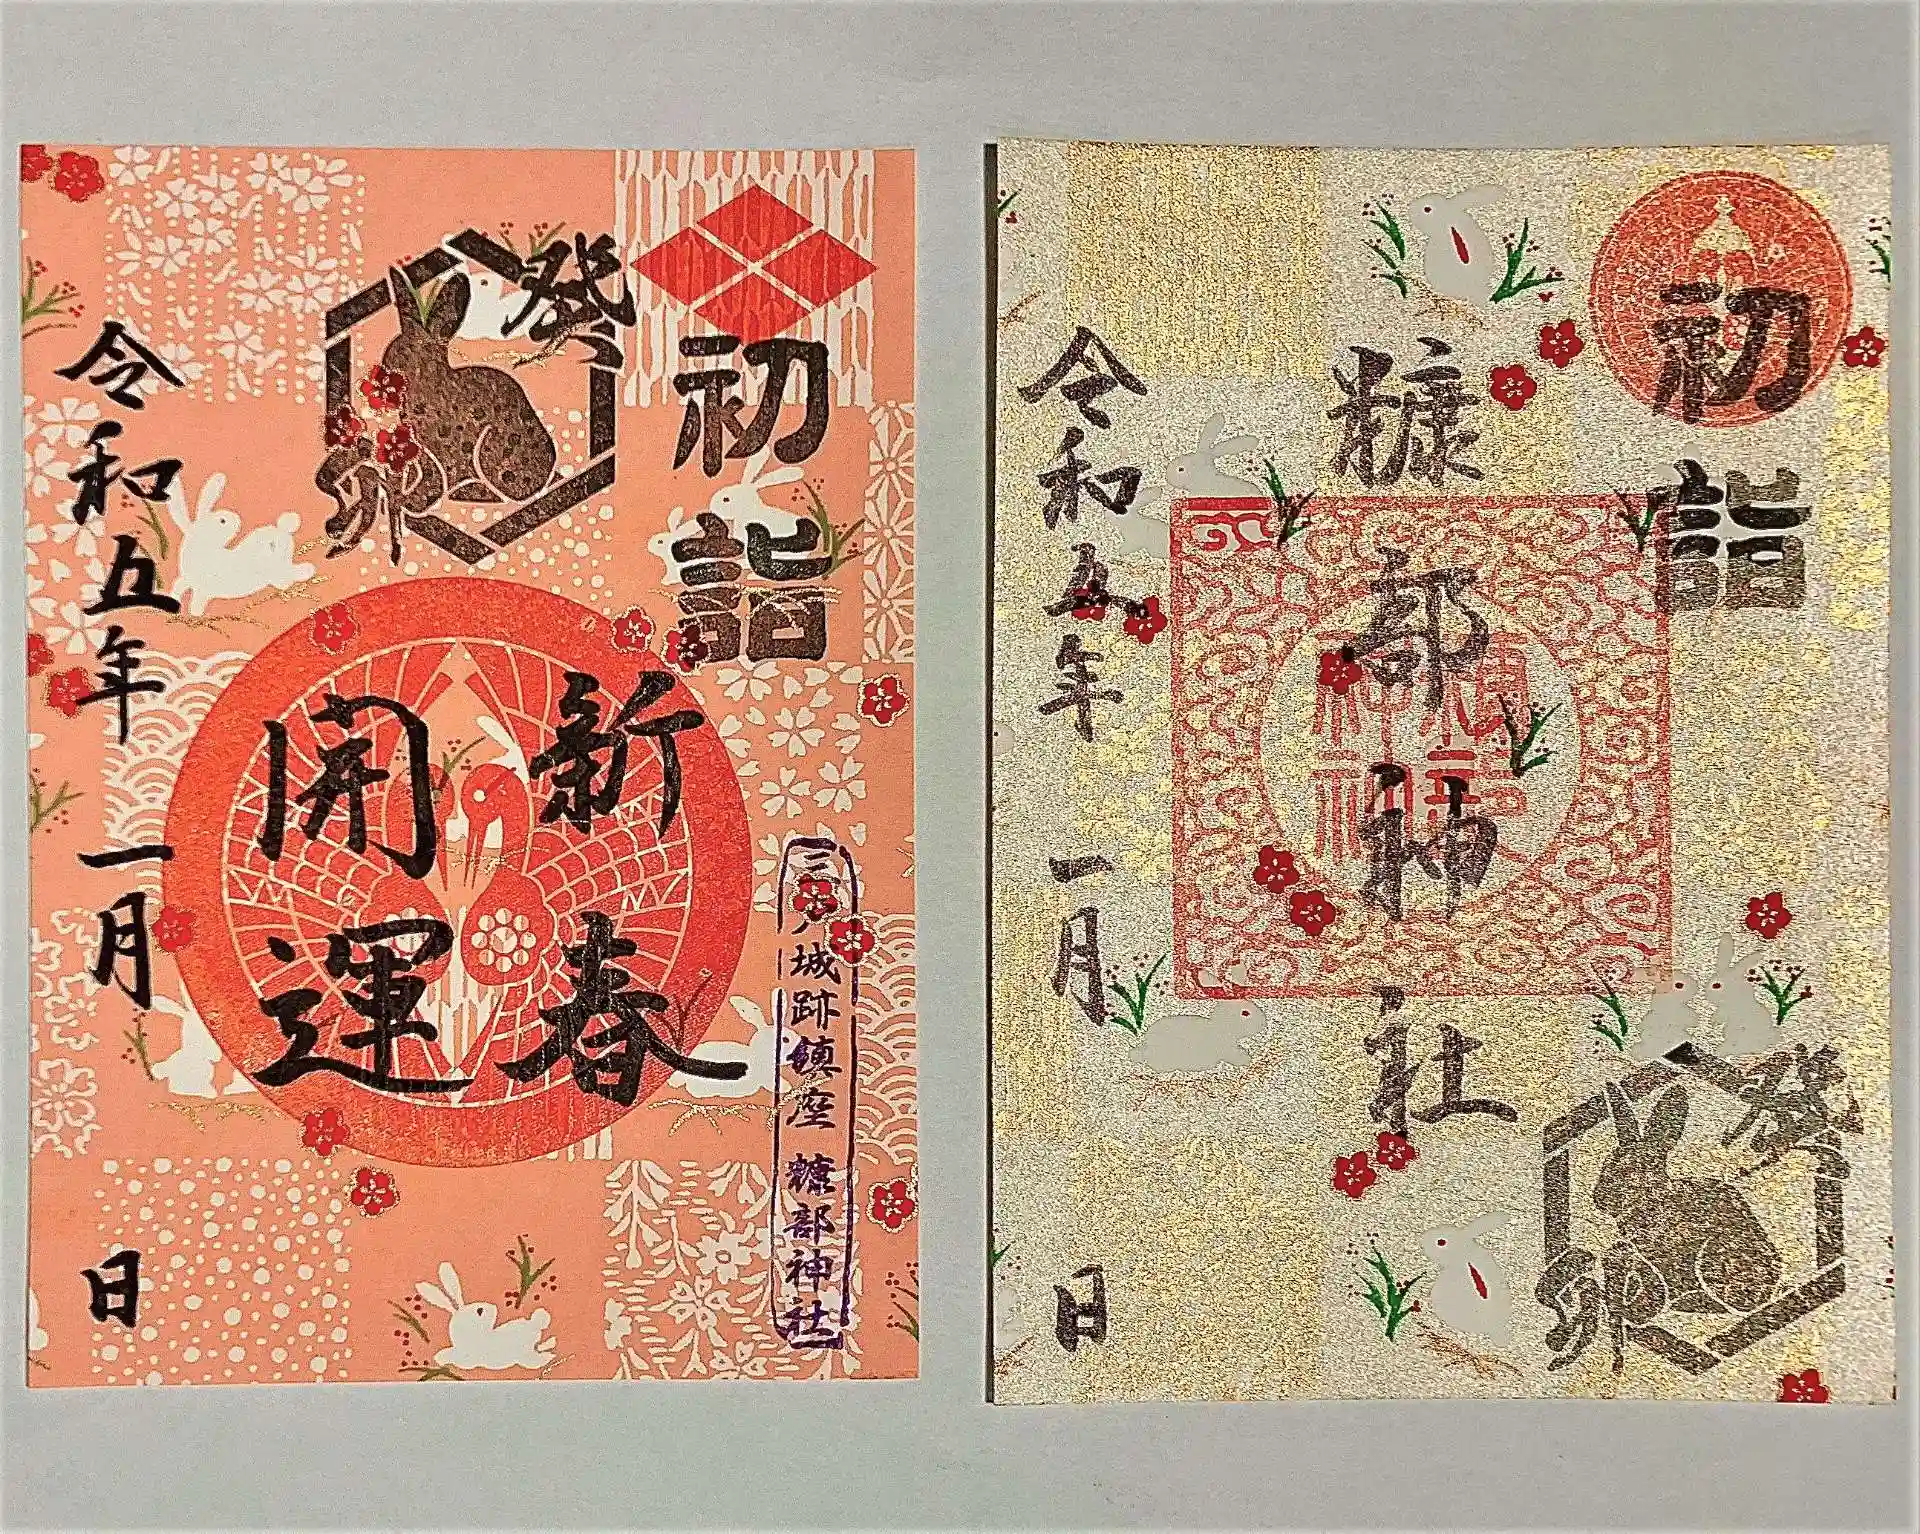 初詣
癸卯
新春
開運
令和五年一月 日
三戸城跡鎮座 糠部神社
初詣
糠部神社
癸卯
令和五年一月 日